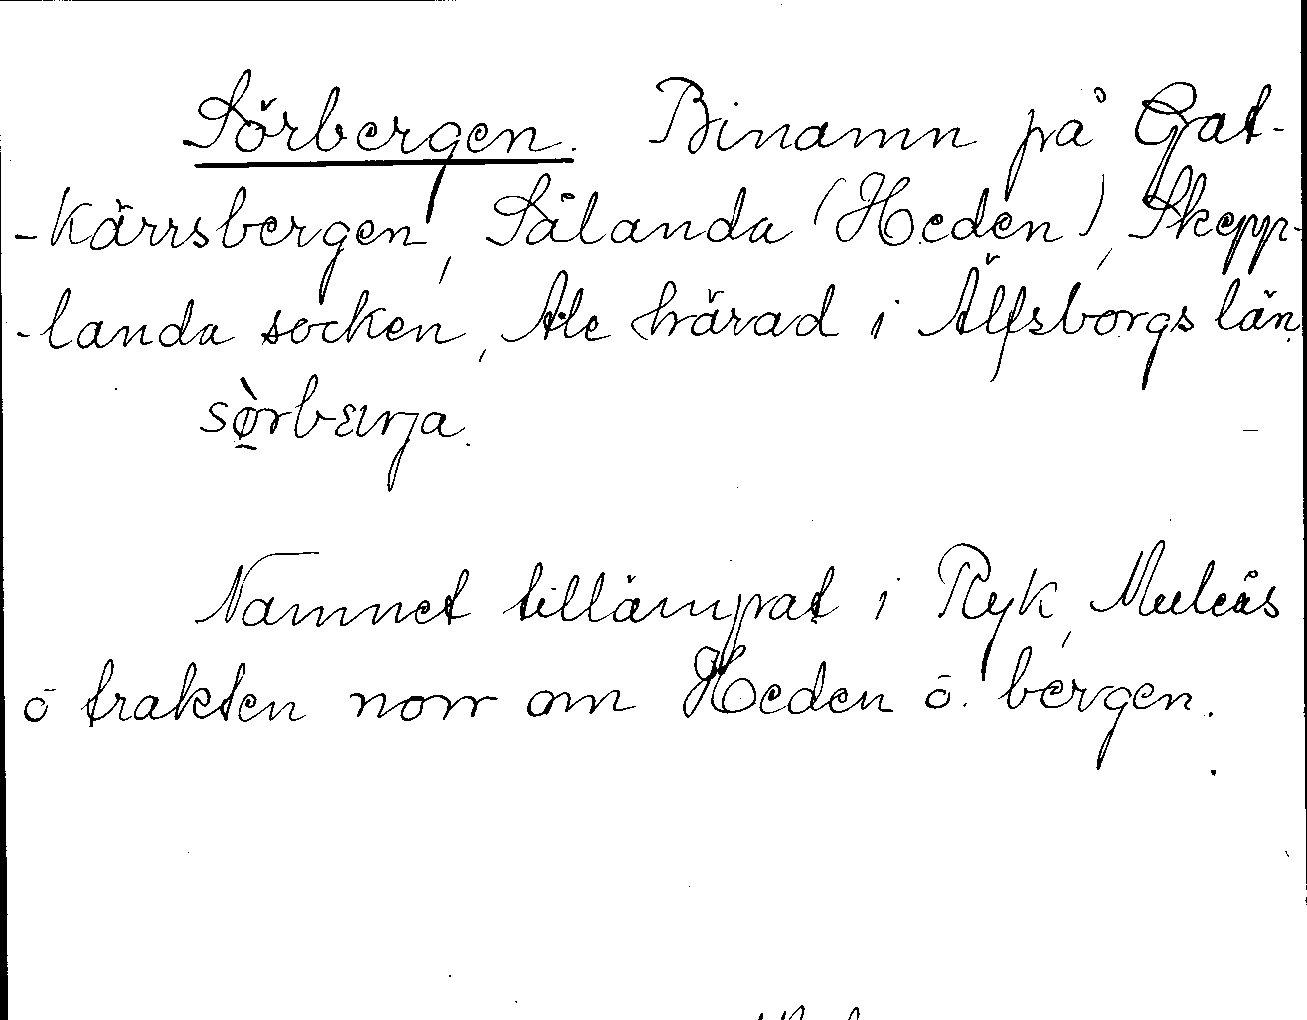 Sörbergen. Binamn på Gat-
-kärrsbergen, Sålanda (Heden), Skepp-
-landa socken, Ale härad i Älfsborgs län.
sø̱̀rbɛrja.
Namnet tillämpat i Ryk, Muleås
o trakten norr om Heden o. bergen.